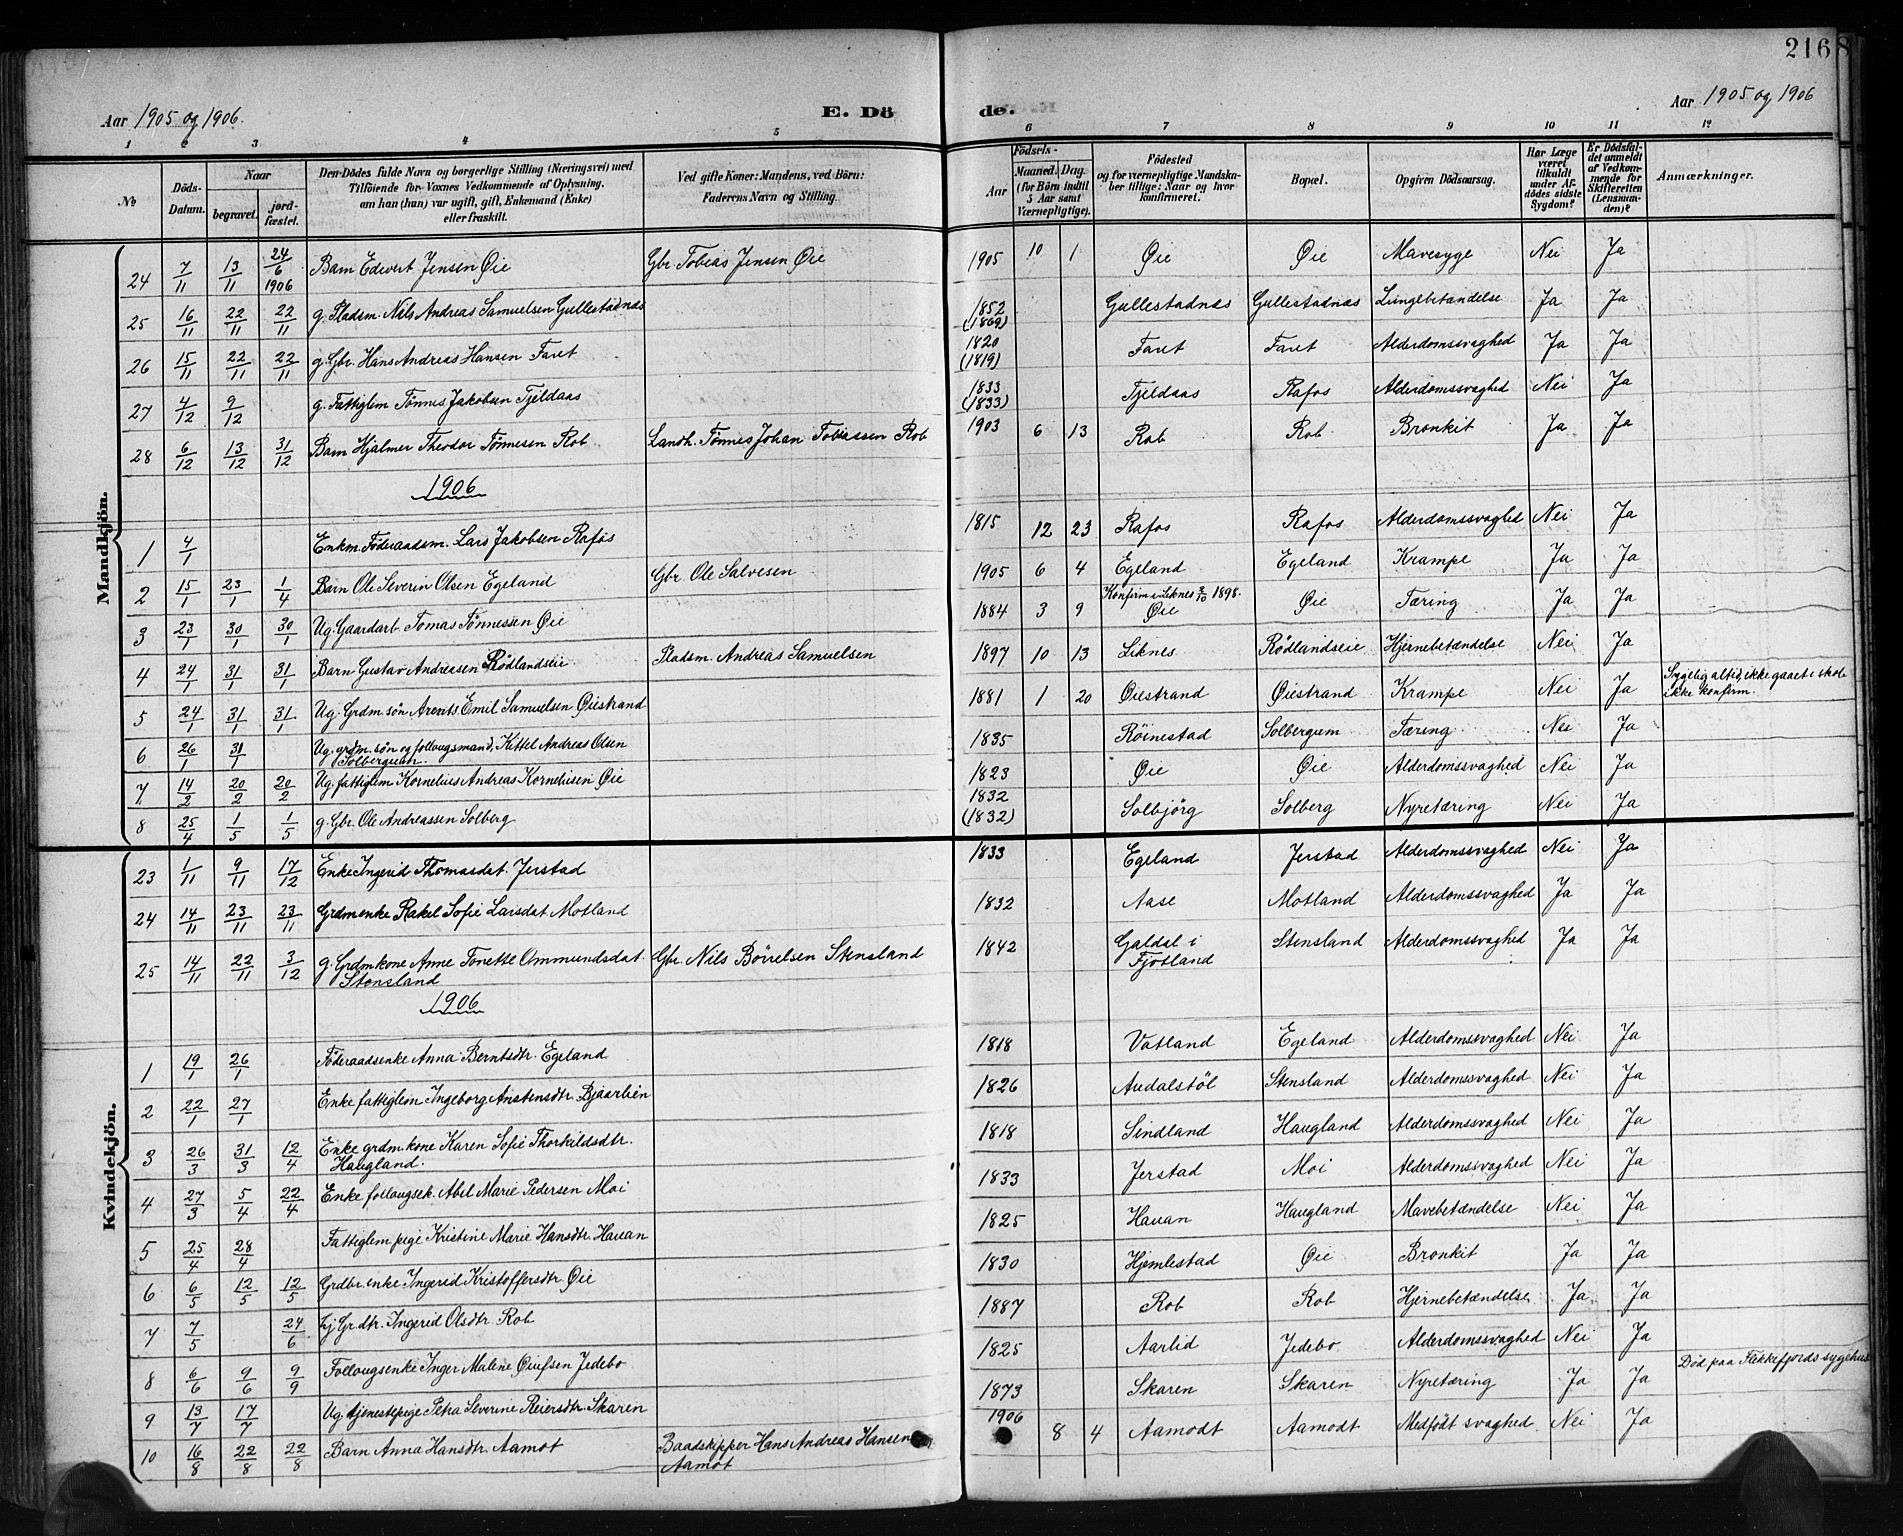 216
Aar 1905 og 1906.
E. Dö de.
Aar 1905 og 1906
1 2 3 4 5 6 7 8 9 10 11 12
№
Döds-Datum.
Naar
begravet. jord-fæstet.
Den Dödes fulde Navn og borgerlige Stilling (Næringsvei) med
Tilföiende for Voxnes Vedkommende af Oplysning,
om han (hun) var ugift, gift, Enkemand (Enke)
eller fraskilt.
Ved gifte Koner: Mandens, ved Börn:
Faderens Navn og Stilling.
Födsels-
Aar Maaned. Dag.
(for Börn indtil
5 Aar samt
Værnepligtige).
Födested
og for værnepligtige Mandska-
ber tillige: Naar og hvor
konfirmeret.
Bopæl.
Opgiven Dödsaarsag.
Har Læge
været
tilkaldt
under Af-
dödes sidste
Sygdom?
Er Dödsfal-
det anmeldt
af Vedkom-
mende for
Skifteretten
(Lensman-
den)?
Anmærkninger.
Mandkjön.
24 7/11 13/11 24/6 1906 Barn Edevert Jensen Øie Gbr. Tobias Jensen Øie 1905 10 1 Øie Øie Mavesyge Nei Ja
25 16/11 22/11 22/11 g. Pladsm. Nils Andreas Samuelsen Gullestadnæs 1852 (1869) Gullestadnæs Gullestadnæs Lungebetændelse Ja Ja
26 15/11 22/11 22/11 g. Gbr. Hans Andreas Hansen Faret 1820 (1819) Faret Faret Alderdomssvaghed Ja Ja
27 4/12 9/12 g. Fattiglem Tönnes Jakobsen Tjeldaas 1833 (1833) Tjeldaas Rafos Alderdomssvaghed Nei Ja
28 6/12 13/12 31/12 Barn Hjalmer Theodor Tönnesen Rob Landh. Tönnes Johan Tobiassen Rob 1903 6 13 Rob Rob Bronkit Ja Ja
1906
1 4/1 Enkm. Föderaadsm. Lars Jakobsen Rafos 1815 12 23 Rafos Rafos Alderdomssvaghed Nei Ja
2 15/1 23/1 1/4 Barn Ole Severin Olsen Egeland Gbr. Ole Salvesen 1905 6 4 Egeland Egeland Krampe Ja Ja
3 23/1 30/1 30/1 Ug. Gaardarb. Tomas Tönnessen Øie 1884 3 9 Konfirm. i Liknes 2/10 1898. Øie Øie Tæring Ja Ja
4 24/1 31/1 31/1 Barn Gustav Andreasen Rödlandseie Pladsm. Andreas Samuelsen 1897 10 13 Liknes Rödlandseie Hjernebetændelse Nei Ja
5 24/1 31/1 31/1 Ug. Grdm. sön Arents Emil Samuelsen Øiestrand 1881 1 20 Øiestrand Øiestrand Krampe Nei Ja Sygelig altid, ikke gaaet i skole
ikke konfirm.
6 26/1 31/1 Ug. grdm. sön og follaugsmand Kittel Andreas Olsen
Solbergum. 1835 Röinestad Solbergum Tæring Nei Ja
7 14/2 20/2 20/2 Ug. fattiglem Kornelius Andreas Korneliusen Øie 1823 Øie Øie Alderdomssvaghed Nei Ja
8 25/4 1/5 1/5 g. Gbr. Ole Andreassen Solberg 1832 (1832) Solbjörg Solberg Nyretæring Nei Ja
Kvindekjön.
23 1/11 9/11 17/12 Enke Ingerid Thomasdat. Jerstad 1833 Egeland Jerstad Alderdomssvaghed Nei Ja
24 14/11 23/11 23/11 Grdm enke Rakel Sofie Larsdat Motland 1832 Aase Motland Alderdomssvaghed Ja Ja
25 14/11 22/11 3/12 g. Grdmkone Anne Tonette Ommundsdat. Gbr. Nils Börrelsen Stensland 1842 Galdal i Stensland Alderdomssvaghed Ja Ja
Stensland Fjotland
1906
1 19/1 26/1 Föderaadsenke Anna Berntsdtr. Egeland 1818 Vatland Egeland Alderdomssvaghed Nei Ja
2 22/1 27/1 Enke fattiglem Ingeborg Anstensdtr. Bjaarlien 1826 Audalstöl Stensland Alderdomssvaghed Nei Ja
3 26/3 31/3 12/4 Enke grdm. kone Karen Sofie Thorkildsdtr.
Haugland. 1818 Sindland Haugland Alderdomssvaghed Nei Ja
4 27/3 5/4 22/4 Enke follaugsek. Abel Marie Pedersen Moi 1833 Jerstad Moi Alderdomssvaghed Nei Ja
5 25/4 28/4 Fattiglem pige Kristine Marie Hansdtr. Hauan 1825 Hauan Haugland Mavebetændelse Nei Ja
6 6/5 12/5 12/5 Grdbr. enke Ingerid Kristoffersdtr. Øie 1830 Hjemlestad Øie Bronkit Ja Ja
7 7/5 24/6 Grdtr. Ingerid Olsdtr. Rob 1887 Rob Rob Hjernebetændelse Ja Ja
8 6/6 9/6 9/9 Follougsenke Inger Malene Øiufsen Jedebo 1825 Aarlid Jedebo Alderdomssvaghed Nei Ja
9 13/7 17/7 Ug. tjenestepige Petra Severine Reiersdtr. Skaren 1873 Skaren Skaren Nyretæring Ja Ja Död paa Flekkefjords sygehus
10 16/8 22/8 22/8 Barn Anna Hansdtr. Aamot Baadskipper Hans Andreas Hansen
Aamot 1906 8 4 Aamodt Aamodt Medfödt svaghed Nei Ja